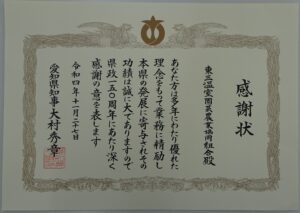 感謝状
東三温室園芸農業協同組合殿
あなた方は多年にわたり優れた
理念をもって業務に精励し
本県の発展に寄与されその
功績は誠に大でありますので
県政一五〇周年にあたり深く
感謝の意を表します
令和四年十一月二十七日
愛知県知事大村秀章